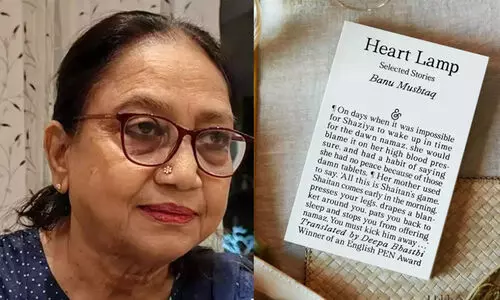 Heart Lamp
Selected Stories
Banu Mushtaq
&
¶ On days when it was impossible
for Shaziya to wake up in time
for the dawn namaz, she would
blame it on her high blood pres-
sure, and had a habit of saying
she had no peace because of those
damn tablets. ¶ Her mother used
to say, 'All this is Shaitan's game.
Shaitan comes early in the morning,
presses your legs, drapes a blan-
ket around you, pats you back to
sleep and stops you from offering
namaz. You must kick him away ...
Translated by Deepa Bhasthi
Winner of an English PEN Award